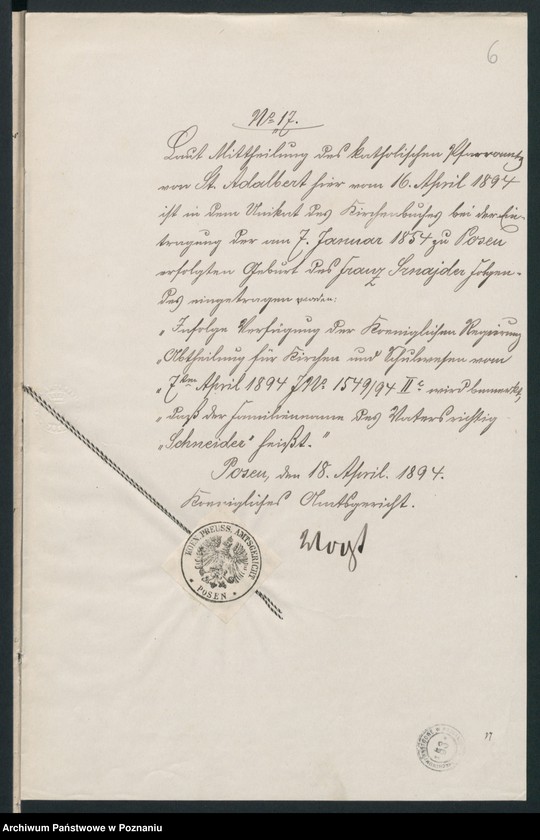 6
No 17.
Laut Mittheilung des katholischen Pfarramts
von St. Adalbert hier vom 16. April 1894
ist in dem Unikat des Kirchenbuches bei der Ein-
tragung der am 7. Januar 1854 zu Posen
erfolgten Geburt des Franz Sznajder Folgen-
des eingetragen worden:
„Infolge Verfügung der Koeniglichen Regierung
„Abtheilung für Kirchen und Schulwesen vom
„7ten April 1894 J No 1549/94 II c wird bemerkt,
„daß der Familienname des Vaters richtig
„Schneider" heißt."
Posen, den 18. April. 1894.
Koenigliches Amtsgericht.
Vogt
KÖN. PREUSS. AMTSGERICHT
* POSEN *
17
Archiwum Państwowe w Poznaniu